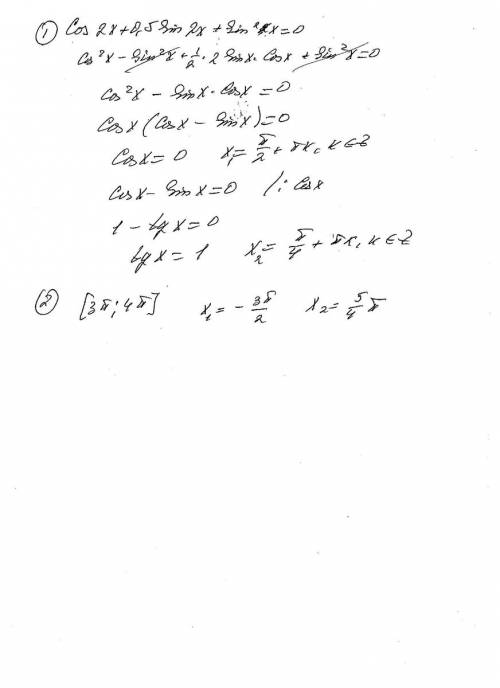 ① Cos 2x + 0,5 Sin 2x + Sin²x = 0
Cos²x - Sin²x + 1/2 · 2 Sinx · Cosx + Sin²x = 0
Cos²x - Sinx · Cosx = 0
Cosx (Cosx - Sinx) = 0
Cosx = 0 x₁ = π/2 + πk, k ∈ Z
Cosx - Sinx = 0 /: Cosx
1 - tgx = 0
tgx = 1 x₂ = π/4 + πk, k ∈ Z
② [3π; 4π] x₁ = - 3π/2 x₂ = 5/4 π